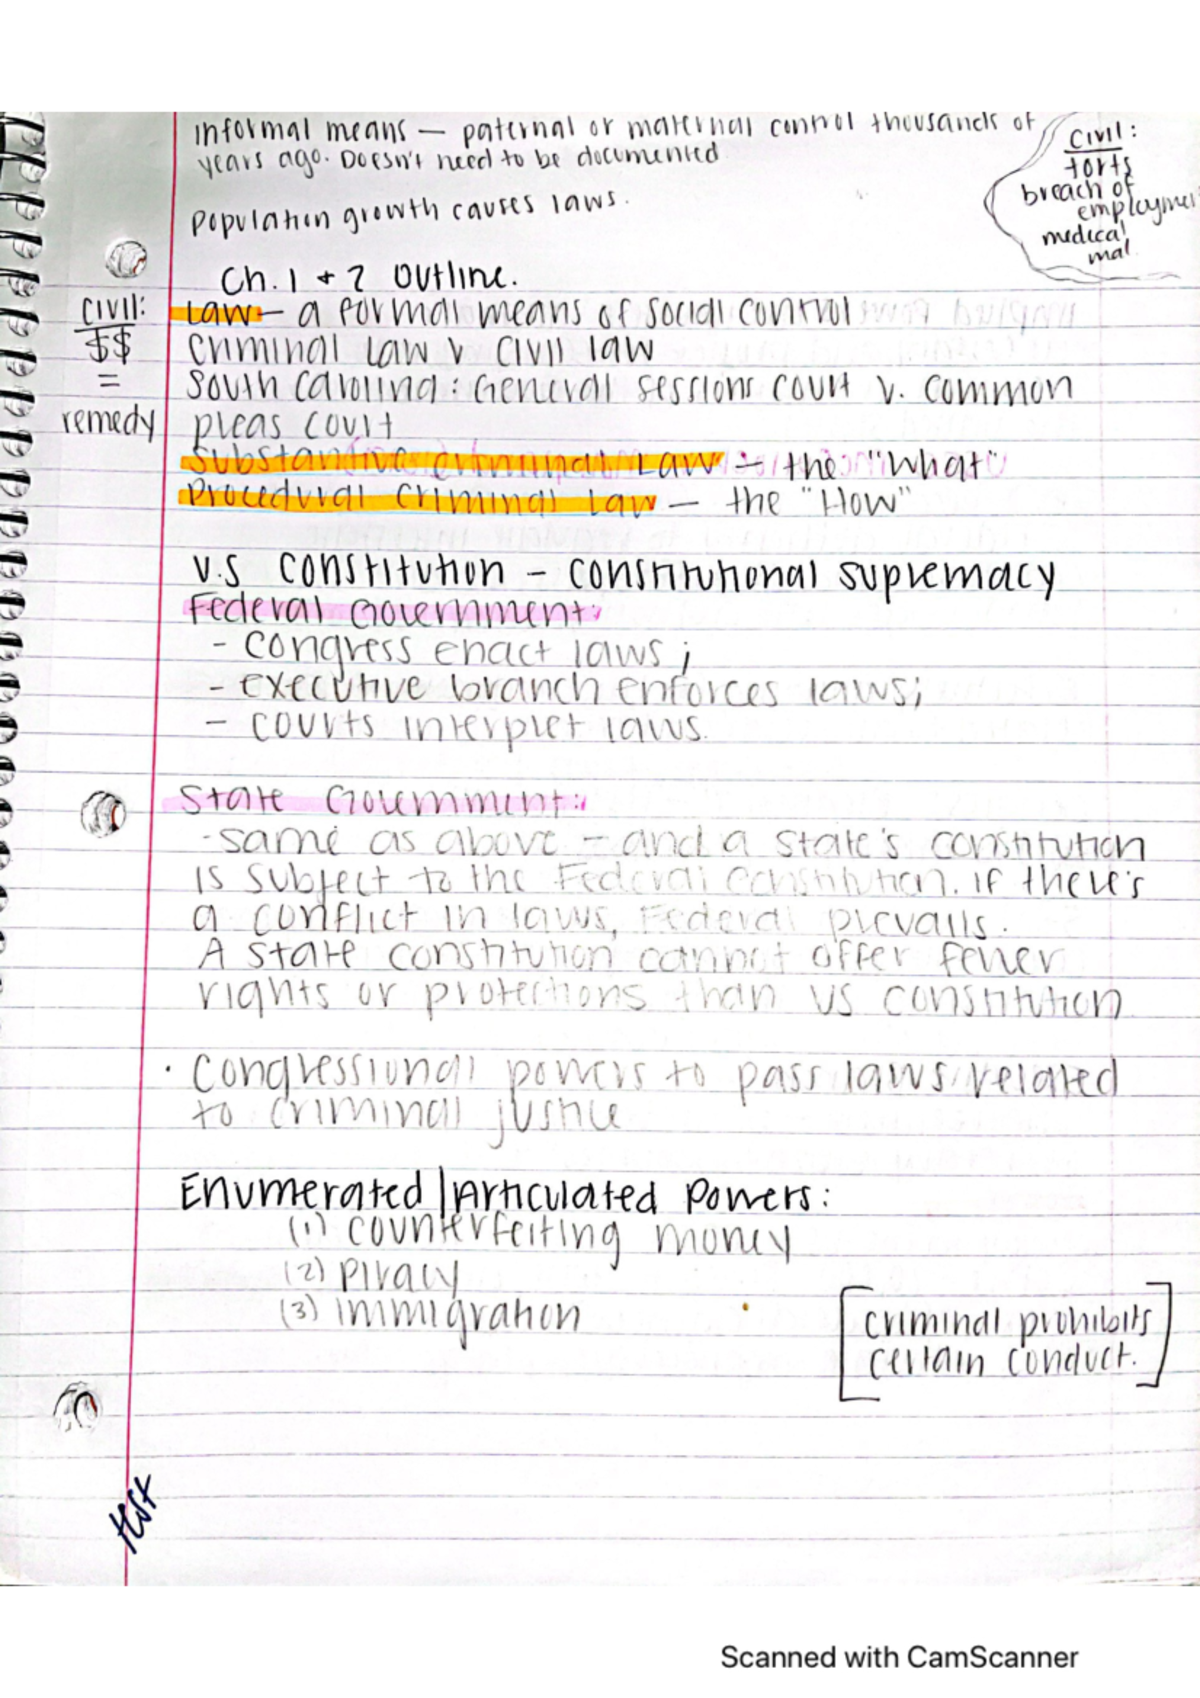 Informal means — paternal or maternal control thousands of
years ago. Doesn't need to be documented
Population growth causes laws.
Civil:
torts
breach of
employmen
medical
mal.
Ch. 1 + 2 Outline.
Civil:
$$
=
remedy
Law — a formal means of social control
Criminal law v civil law
South Carolina: General sessions court v. common
pleas court
Substantive Criminal Law — the "What"
Procedural Criminal Law — the "How"
U.S Constitution – constitutional supremacy
Federal Government:
- congress enact laws;
- executive branch enforces laws;
- courts interpret laws.
State Government:
- same as above – and a state's constitution
is subject to the Federal Constitution. if there's
a conflict in laws, Federal prevails.
A state constitution cannot offer fewer
rights or protections than US constitution
· Congressional powers to pass laws related
to criminal justice
Enumerated | Articulated Powers:
(1) counterfeiting money
(2) piracy
(3) immigration
[criminal prohibits
certain conduct.]
Scanned with CamScanner